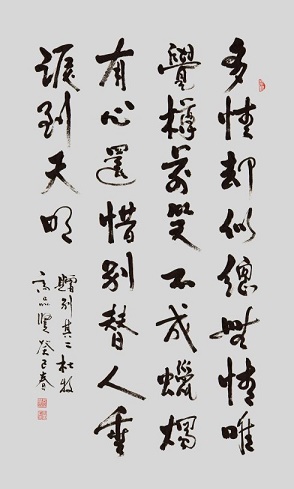 多情却似總無情唯
覺樽前笑不成蠟燭
有心還惜別替人垂
淚到天明
贈別其二 杜牧
癸巳春